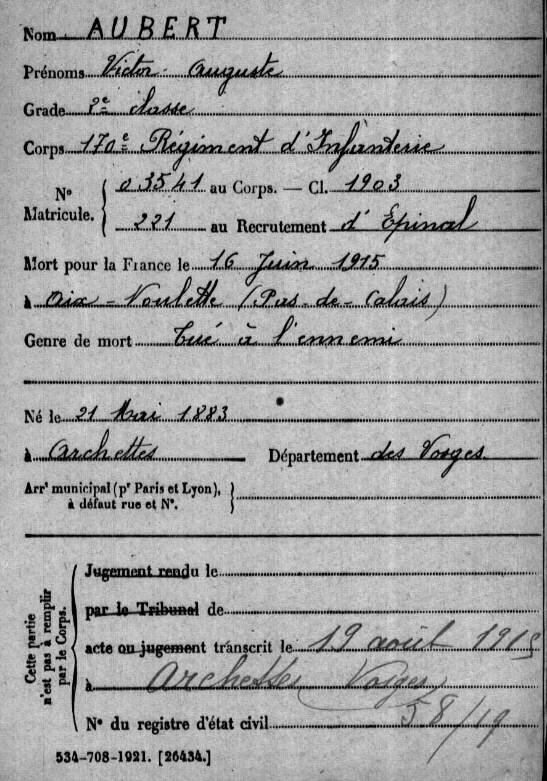 Nom AUBERT
Prénoms Victor Auguste
Grade 2e classe
Corps 170e Régiment d'Infanterie
N° Matricule. { 03541 au Corps. — Cl. 1903
221 au Recrutement d'Epinal
Mort pour la France le 16 Juin 1915
à Aix-Noulette (Pas-de-Calais)
Genre de mort Tué à l'ennemi
Né le 21 Mai 1883
à Archettes Département des Vosges
Arrt municipal (pr Paris et Lyon), }
à défaut rue et N°.
Cette partie
n'est pas à remplir
par le Corps.
Jugement rendu le
par le Tribunal de
acte ou jugement transcrit le 19 août 1915
à Archettes Vosges
N° du registre d'état civil 58/19
534-708-1921. [26434.]